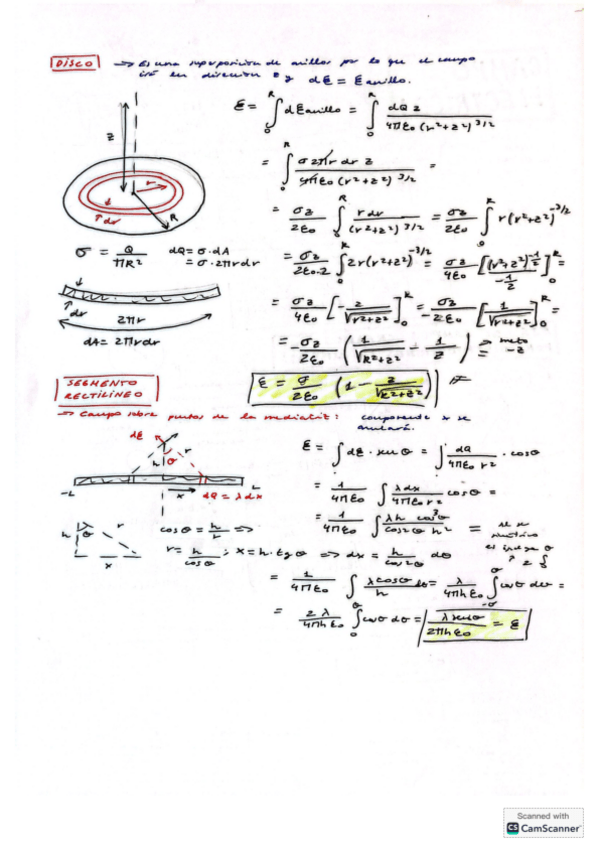 DISCO → Es una superposición de anillos por lo que el campo
irá en dirección z y dE = E anillo.
E = ∫₀ᴿ dE anillo = ∫₀ᴿ dQ z / 4πε₀ (r²+z²)^3/2
z
r
R
dr
= ∫₀ᴿ σ 2πr dr z / 4πε₀ (r²+z²)^3/2 =
= σz/2ε₀ ∫₀ᴿ r dr / (r²+z²)^3/2 = σz/2ε₀ ∫₀ᴿ r(r²+z²)^-3/2
σ = Q/πR² dQ = σ·dA
= σ·2πr dr
= σz/2ε₀·2 ∫₀ᴿ 2r(r²+z²)^-3/2 = σz/4ε₀ [(r²+z²)^-1/2 / -1/2]₀ᴿ =
dr
2πr
dA = 2πr dr
= σz/4ε₀ [-2/√r²+z²]₀ᴿ = σz/-2ε₀ [1/√r²+z²]₀ᴿ =
= -σz/2ε₀ · (1/√R²+z² - 1/z) ⇒ meto
-z
E = σ/2ε₀ (1 - z/√R²+z²)
SEGMENTO
RECTILÍNEO
→ Campo sobre puntos de la mediatriz: componente x se
anulará.
dE
h θ r
-L L
x dQ = λdx
E = ∫ dE · sen θ = ∫ dQ / 4πε₀ r² · cosθ
= 1/4πε₀ ∫ λdx / 4πε₀r² cosθ =
= 1/4πε₀ ∫ λh cos³θ / cos²θ h² =
h θ r
x
cosθ = h/r ⇒
r = h/cosθ ; x = h·tgθ ⇒ dx = h/cos²θ dθ
= 1/4πε₀ ∫ λcosθ/h dθ = λ/4πhε₀ ∫ cosθ dθ =
= 2λ/4πhε₀ ∫₀ cosθ dθ = λ senθ / 2πhε₀ = E
Scanned with
CS CamScanner